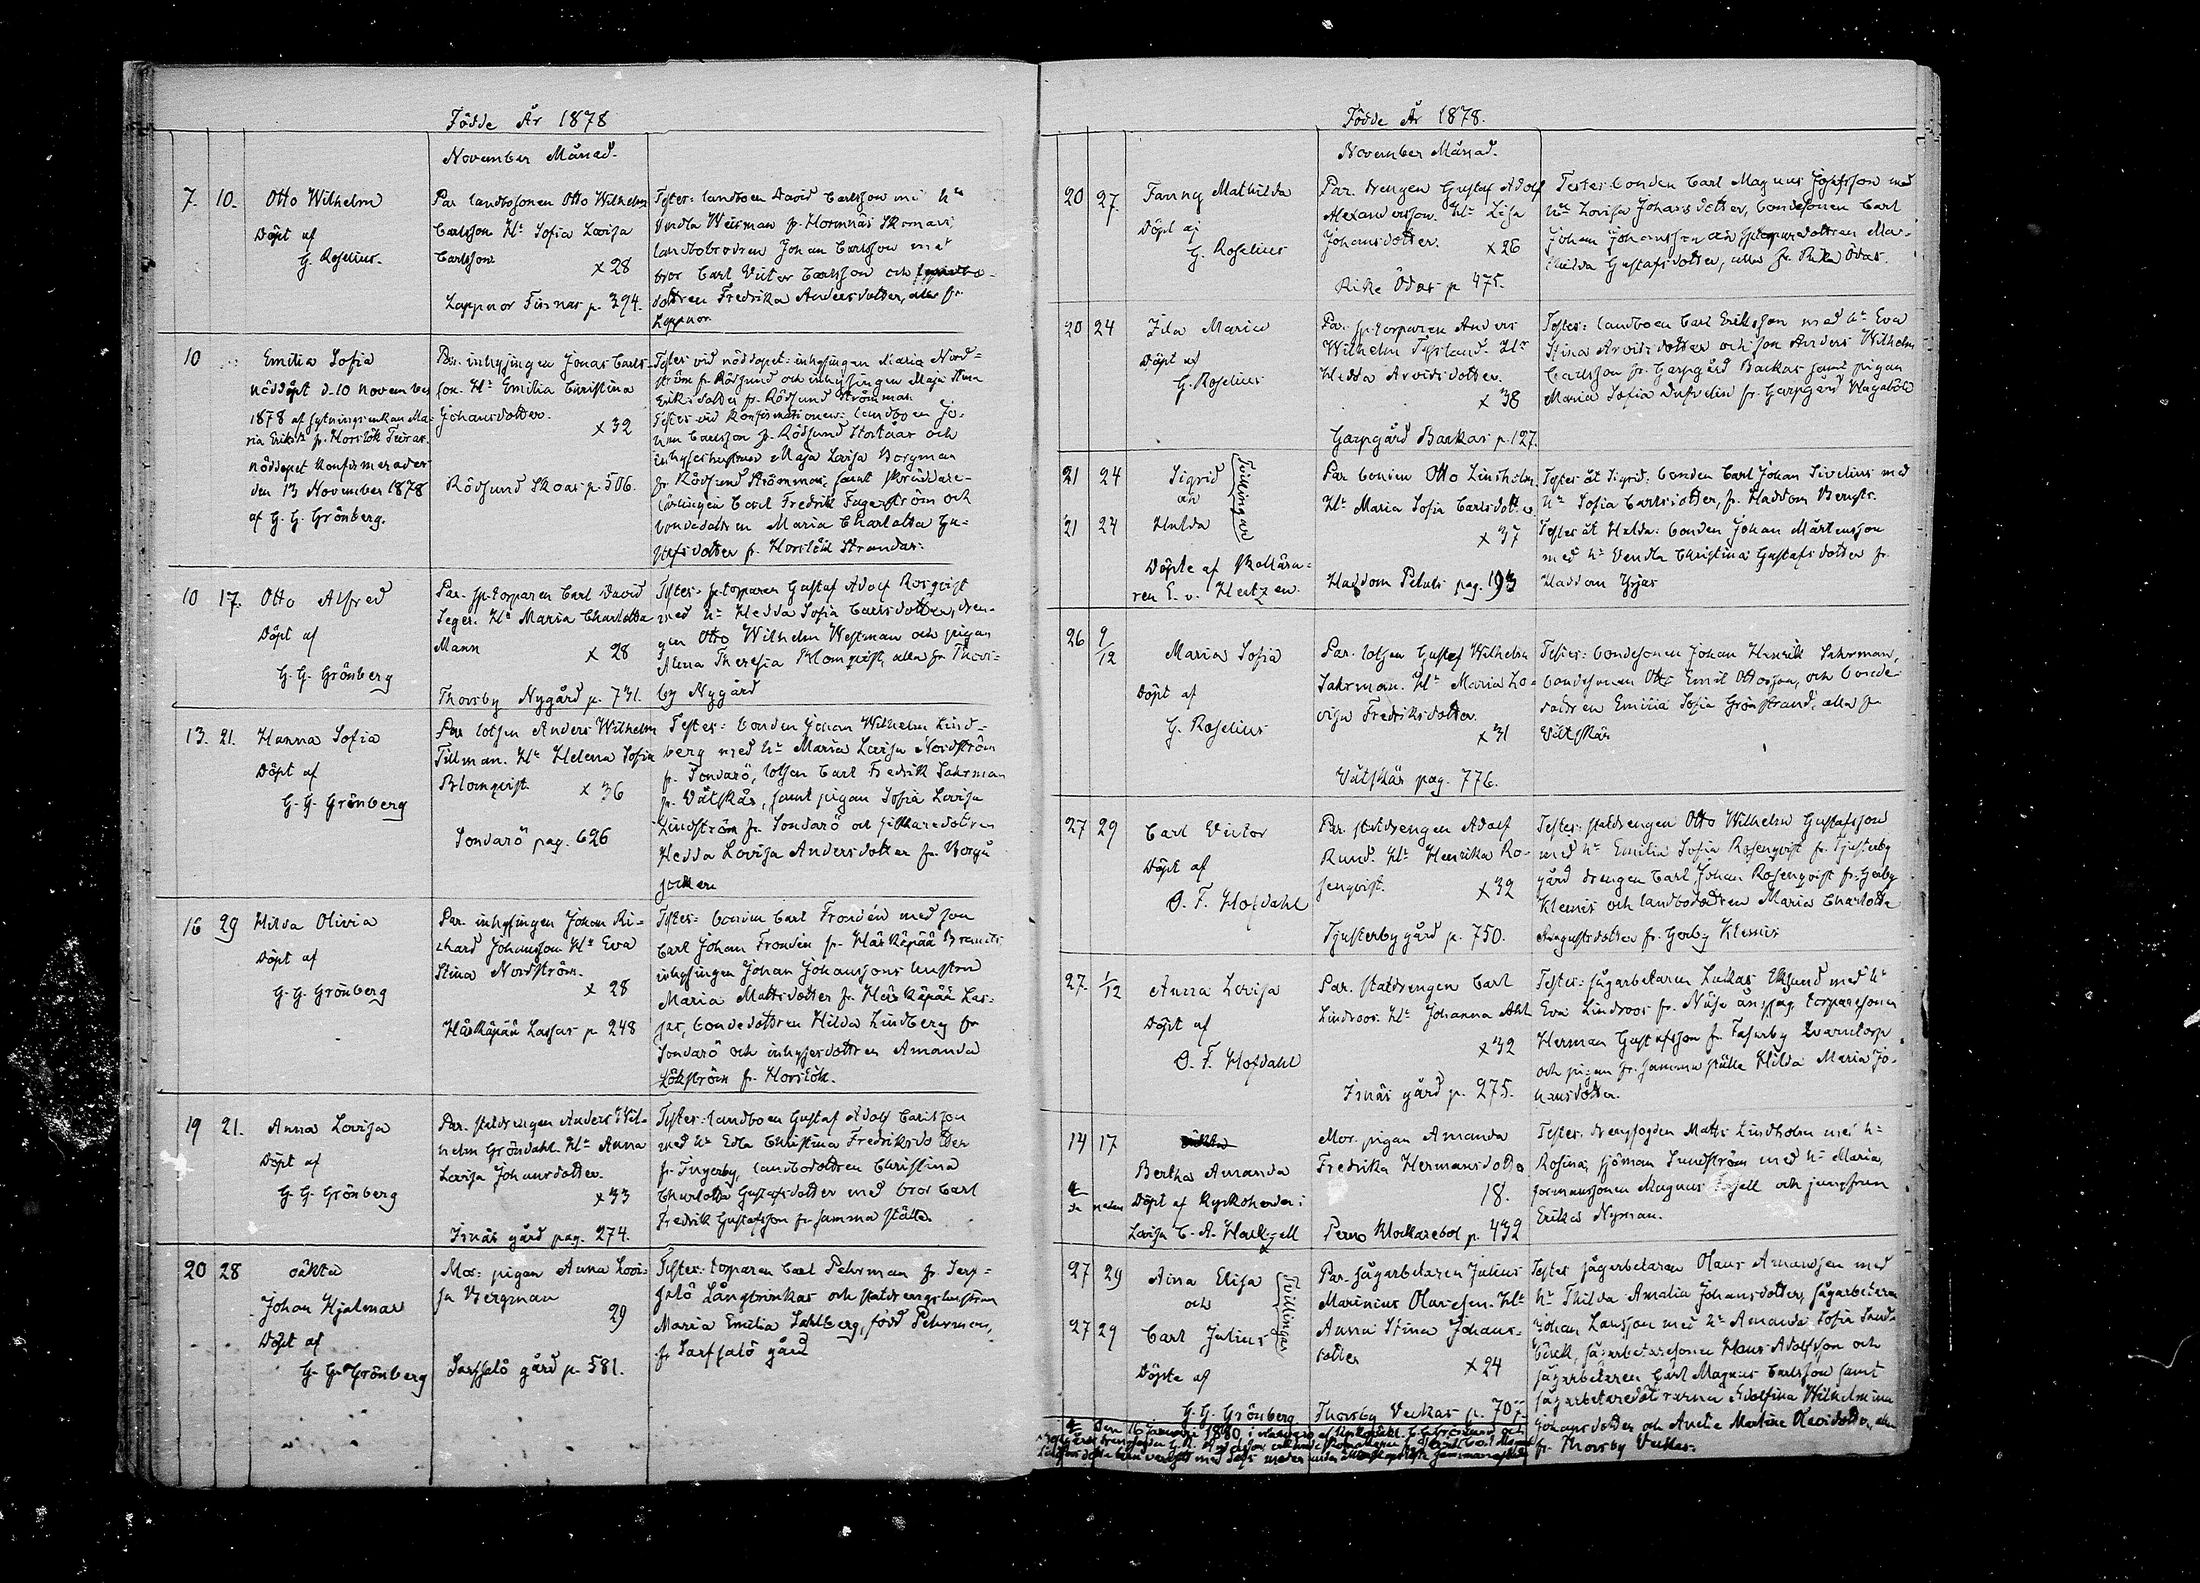 Födde År 1878
November Månad.
7. 10. Otto Wilhelm
Döpt af
G. Roselius.
Par landbosonen Otto Wilhelm
Carlsson H:u Sofia Lovisa
Carlsson
x 28
Lappnor Finnas p. 394.
Testes: landboen David Carlsson m: h:u
Vendla Weisman fr. Hormnäs Skomars
landbobrodren Johan Carlsson med
bror Carl Victor Carlsson och
dottren Fredrika Andersdotter, alla fr.
Lappnor
10 Emilia Sofia
nöddöpt d. 10 November
1878 af
ria fr. Horslök
nöddopet konfirmerades
den 13 November 1878
af G. G. Grönberg.
Par. inhysingen Jonas Carls-
son. H:u Emilia Christina
Johansdotter.
x 32
Rödsund Skoas p. 506.
Testes vid nöddopet: inhysingen Maria Nord-
ström fr. Rödsund och inhysingen Maja Stina
Eriksdotter fr. Rödsund Strömman
Testes vid konfirmationen: landboen Jo-
han Carlsson fr. Rödsund Storstöar och
inhyseshustrun Maja Lovisa Borgman
fr. Rödsund Strömman, samt skräddare-
lärlingen Carl Fredrik Fagerström och
bondedottren Maria Charlotta Gu-
stafsdotter fr. Horslök Strandas.
10 17. Otto Alfred
Döpt af
G. G. Grönberg
Par. sp.torparen Carl David
Seger. H:u Maria Charlotta
Mann
x 28
Thorsby Nygård p. 731.
Testes: sp.torparen Gustaf Adolf Rosqvist
med h:u Hedda Sofia Carlsdotter, dren-
gen Otto Wilhelm Westman och pigan
Alma Theresia Blomqvist, alla fr. Thors-
by Nygård
13. 21. Hanna Sofia
Döpt af
G. G. Grönberg
Par lotsen Anders Wilhelm
Tillman. H:u Helena Sofia
Blomqvist
x 36
Sondarö pag. 626
Testes: bonden Johan Wilhelm Lind-
berg med h:u Maria Lovisa Nordström
fr. Sondarö, lotsen Carl Fredrik Sahrman
fr. Våtskär, samt pigan Sofia Lovisa
Lindström fr. Sondarö och fiskaredottren
Hedda Lovisa Andersdotter fr. Borgå
socken
16 29 Hilda Olivia
Döpt af
G. G. Grönberg
Par. inhysingen Johan Ri-
chard Johansson H:u Eva
Stina Nordström.
x 28
Härkäpää Lassas p. 248
Testes: bonden Carl Frondén med son
Carl Johan Frondén fr. Härkäpää
inhysingen Johan Johanssons hustru
Maria Mattsdotter fr. Härkäpää Las-
sas, bondedottren Hilda Lindberg fr.
Sondarö och inhysesdottren Amanda
Lökström fr. Horslök.
19 21. Anna Lovisa
Döpt af
G. G. Grönberg
Par. statdrengen Anders Wil-
helm Gröndahl. H:u Anna
Lovisa Johansdotter.
x 33
Isnäs gård pag. 274.
Testes: landboen Gustaf Adolf Carlsson
med h:u Edla Christina Fredriksdotter
fr. Ingerby, landbodottren Christina
Charlotta Gustafsdotter med bror Carl
Fredrik Gustafsson fr. samma ställe.
20 28 oäkta
Johan Hjalmar
Döpt af
G. G. Grönberg
Mor: pigan Anna Lovi-
sa Bergman
29
Sarfsalö gård p. 581.
Testes: torparen Carl Pehrman fr. Sarf-
salö Långbrinkas och statdrengshustrun
Maria Emilia Sahlberg, född Pehrman,
fr. Sarfsalö gård
Födde År 1878.
November Månad.
20 27. Fanny Mathilda
Döpt af
G. Roselius
Par. drengen Gustaf Adolf
Alexandersson. H:u Lisa
Johansdotter.
x 26
Rike Ödas p. 475.
Testes: bonden Carl Magnus Josefsson med
h:u Lovisa Johansdotter, bondesonen Carl
Johan Johansson och dottren Ma-
thilda Gustafsdotter, alla fr. Rike Ödas.
20 24 Ida Maria
Döpt af
G. Roselius
Par. sp.torparen Anders
Wilhelm Tysland. H:u
Hedda Arvidsdotter.
x 38
Garpgård Backas p. 127.
Testes: landboen Carl Eriksson med h:u Eva
Stina Arvidsdotter och son Anders Wilhelm
Carlsson fr. Garpgård Backas samt pigan
Maria Sofia fr. Garpgård
21 24 Sigrid
och
21 24 Hulda
Tvillingar
Döpte af Kollara-
ren E. v. Hertzen.
Par bonden Otto Lindholm
H:u Maria Sofia Carlsdotter
x 37
Haddom Petars pag. 193
Testes åt Sigrid: bonden Carl Johan Sivelius med
h:u Sofia Carlsdotter, fr. Haddom Bengts.
Testes åt Hulda: bonden Johan Mårtensson
med h:u Vendla Christina Gustafsdotter fr.
Haddom
26 9/12 Maria Sofia
Döpt af
G. Roselius
Par. lotsen Gustaf Wilhelm
Sahrman. H:u Maria Lo-
visa Fredriksdotter.
x 31
Våtskär pag. 776.
Testes: bondesonen Johan Henrik Sahrman,
bondesonen Otto Emil Ottosson, och bonde-
dottren Emilia Sofia Grönstrand, alla fr.
Våtskär
27 29 Carl Victor
Döpt af
O. F. Hofdahl
Par. statdrengen Adolf
Rund. H:u Henrika Ro-
senqvist.
x 32
Tjusterby gård p. 750.
Testes: statdrengen Otto Wilhelm Gustafsson
med h:u Emilia Sofia Rosenqvist fr. Tjusterby
gård drengen Carl Johan Rosenqvist fr. Gerby
Klemis och landbodottren Maria Charlotta
Augustsdotter fr. Gerby Klemis
27. 1/12 Anna Lovisa
Döpt af
O. F. Hofdahl
Par. statdrengen Carl
Lindroos. H:u Johanna Ahl
x 32
Isnäs gård p. 275.
Testes: sågarbetaren Lukas Eklund med h:u
Eva Lindroos fr. Näse ångsåg, torparesonen
Herman Gustafsson fr. Fasarby Qvarntorp
och pigan fr. samma ställe Hilda Maria Jo-
hansdotter.
14 17 oäkta
Bertha Amanda
Döpt af Kyrkoherden i
Lovisa C. A. Harkzell
Mor. pigan Amanda
Fredrika Hermansdotter
18.
Perno Klockarebol p. 432
Testes. drengfogden Matts Lindholm med h:u
Rosina, sjöman Sundström med h:u Maria,
formansonen Magnus och jungfrun
Erika Nyman.
27 29 Aina Elisa
och
27 29 Carl Julius
Tvillingar
Döpte af
G. G. Grönberg
Par. sågarbetaren Julius
Marinius Olaussen. H:u
Anna Stina Johans-
dotter
x 24
Thorsby Veckas p. 707.
Testes sågarbetaren Olaus Amandsen med
h:u Thilda Amalia Johansdotter, sågarbetaren
Johan Larsson med h:u Amanda Sofia Sand-
bäck, sågarbetaresonen Hans Adolfsson och
sågarbetaren Carl Magnus Carlsson samt
sågarbetaredöttrarna Adolfina Wilhelmina
Johansdotter och Anette Martina Olausdotter, alla
fr. Thorsby Veckas.
den 16 januari 1880, i närvaro af